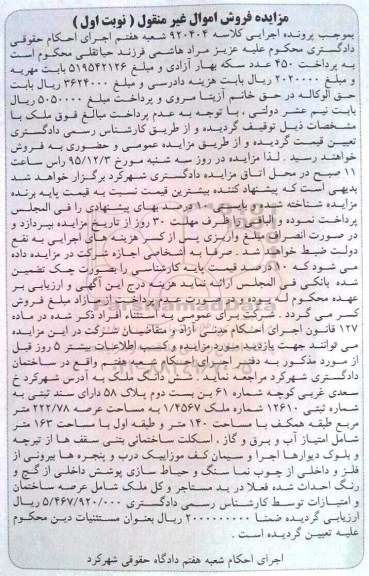 مزایده فروش اموال غیر منقول ( نوبت اول )
بموجب پرونده اجرایی کلاسه ۹۲۰۴۰۴ شعبه هفتم اجرای احکام حقوقی
دادگستری محکوم علیه عزیز مراد هاشمی فرزند حیاتقلی محکوم است
به پرداخت ۴۵۰ عدد سکه بهار آزادی و مبلغ ۵۱۹۵۴۲۱۲۶ بابت مهریه
و مبلغ ۲۰۲۰۰۰۰ ریال بابت هزینه دادرسی و مبلغ ۳۶۲۴۰۰۰ ریال بابت
حق الوکاله در حق خانم آزیتا مروی و پرداخت مبلغ ۵۰۵۰۰۰۰ ریال
بابت نیم عشر دولتی ، با توجه به عدم پرداخت مبالغ فوق ملک با
مشخصات ذیل توقیف گردیده و از طریق کارشناس رسمی دادگستری
تعیین قیمت گردیده و از طریق مزایده عمومی و حضوری به فروش
خواهند رسید . لذا مزایده در روز سه شنبه مورخ ۹۵/۱۲/۳ راس ساعت
۱۱ صبح در محل اتاق مزایده دادگستری شهرکرد برگزار خواهد شد
بدیهی است که پیشنهاد کننده بیشترین قیمت نسبت به قیمت پایه برنده
مزایده شناخته شده و بایستی ۱۰ درصد بهای پیشنهادی را فی المجلس
پرداخت نموده و الباقی را ظرف مهلت ۳۰ روز از تاریخ مزایده بپردازد و
در صورت انصراف مبلغ واریزی پس از کسر هزینه های اجرایی به نفع
دولت ضبط خواهد شد . صرفا به اشخاصی اجازه شرکت در مزایده داده
می شود که ۱۰ درصد قیمت پایه کارشناسی را بصورت چک تضمین
شده بانکی فی المجلس ارائه نماید هزینه درج این آگهی و ارزیابی بر
عهده محکوم له بوده و در صورت عدم پرداخت از مازاد مبلغ فروش
کسر می گردد . شرکت برای عموم به استثناء افراد ذکر شده در ماده
۱۲۷ قانون اجرای احکام مدنی آزاد و متقاضیان شرکت در این مزایده
می توانند جهت بازدید مورد مزایده و کسب اطلاعات بیشتر ۵ روز قبل
از مورد مذکور به دفتر اجرای احکام شعبه هفتم واقع در ساختمان
دادگستری شهرکرد مراجعه نماید . شش دانگ ملک به آدرس شهرکرد خ
سعدی غربی کوچه شماره ۶۱ بن بست دوم پلاک ۵۸ دارای سند ثبتی به
شماره ثبتی ۱۲۶۱۰ شماره ملک ۱/۴۵۶۷ به مساحت عرصه ۲۲۲/۷۸ متر
مربع طبقه همکف با مساحت ۱۴۰ متر و طبقه اول با مساحت ۱۶۳ متر
شامل امتیاز آب و برق و گاز ، اسکلت ساختمانی بتنی سقف ها از تیرچه
و بلوک دیوارها اجرا و سیمان کف موزاییک درب و پنجره ها بیرونی از
فلز و داخلی از چوب نما سنگ و حیاط سازی پوشش داخلی از گچ و
رنگ احداث شده فعلا در ید مستاجر و کل ملک شامل عرصه ساختمان
و امتیازات توسط کارشناس رسمی دادگستری ۵/۴۶۷/۹۲۰/۰۰۰ ریال
ارزیابی گردیده ضمنا ۲۰۰۰۰۰۰۰۰۰ ریال بعنوان مستثنیات دین محکوم
علیه تعیین گردیده است .
اجرای احکام شعبه هفتم دادگاه حقوقی شهرکرد